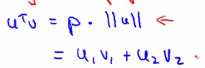 uᵀv = p · ||u|| ←
= u₁v₁ + u₂v₂ .